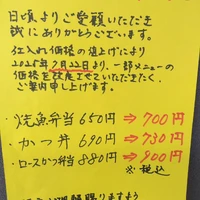 日頃よりご愛顧いただき
誠にありがとうございます。
仕入れ価格の値上げにより
2025年2月22日より、一部メニューの
価格を改定させていただきたく
ご案内申し上げます。
・焼魚弁当 650円⇒700円
・かつ丼 690円⇒730円
・ロースかつ弁当 880円⇒900円
※税込
賜りますよう